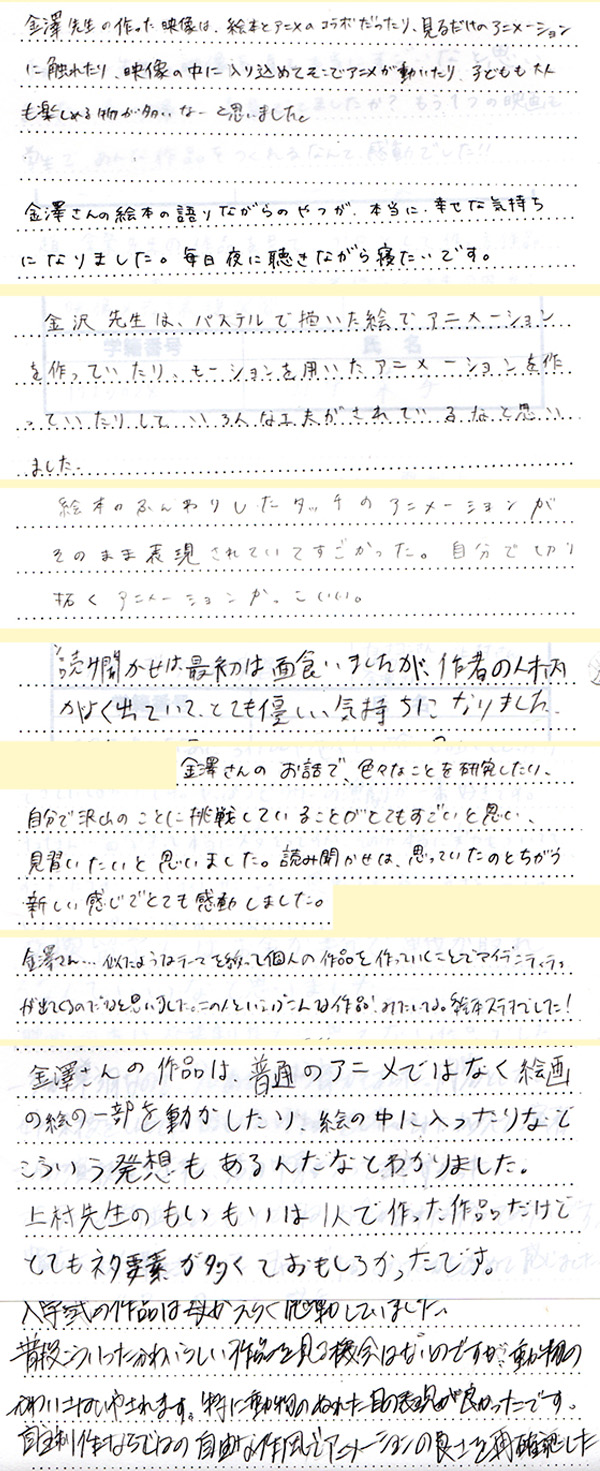 金澤先生の作った映像は、絵本とアニメのコラボだったり、見るだけのアニメーション
に触れたり、映像の中に入り込めてそこでアニメが動いたり、子どもも大人
も楽しめる物が多いなーと思いました。
金澤さんの絵本の語りながらのやつが、本当に、幸せな気持ち
になりました。毎日夜に聴きながら寝たいです。
金沢先生は、パステルで描いた絵でアニメーション
を作っていたり、モーションを用いたアニメーションを作
っていたりしていろんな工夫がされているなと思い
ました。
絵本のふんわりしたタッチのアニメーションが
そのまま表現されていてすごかった。自分で切り
拓くアニメーションかっこいい。
読み聞かせは最初は面食いましたが、作者の人柄
がよく出ていて、とても優しい気持ちになりました。
金澤さんのお話で、色々なことを研究したり、
自分で沢山のことに挑戦していることがとてもすごいと思い、
見習いたいと思いました。読み聞かせは、思っていたのとちがう
新しい感じでとても感動しました。
金澤さん…似たようなテーマを絞って個人の作品を作っていくことでアイデンティティ
が出てくるのだなと思いました。この人といえばこんな作品!みたいな。絵本ステキでした!
金澤さんの作品は普通のアニメではなく絵画
の絵の一部を動かしたり、絵の中に入ったりなど
こういう発想もあるんだなとわかりました。
上村先生のもいもいは1人で作った作品だけど
とてもネタ要素が多くておもしろかったです。
入学式の作品は母がえらく感動していました。
普段こういったかわいらしい作品を見る機会はないのですが、動物の
かわいさにいやされます。特に動物のぬれた目の表現が良かったです。
自主制作ならではの自由な作風でアニメーションの良さを再確認した